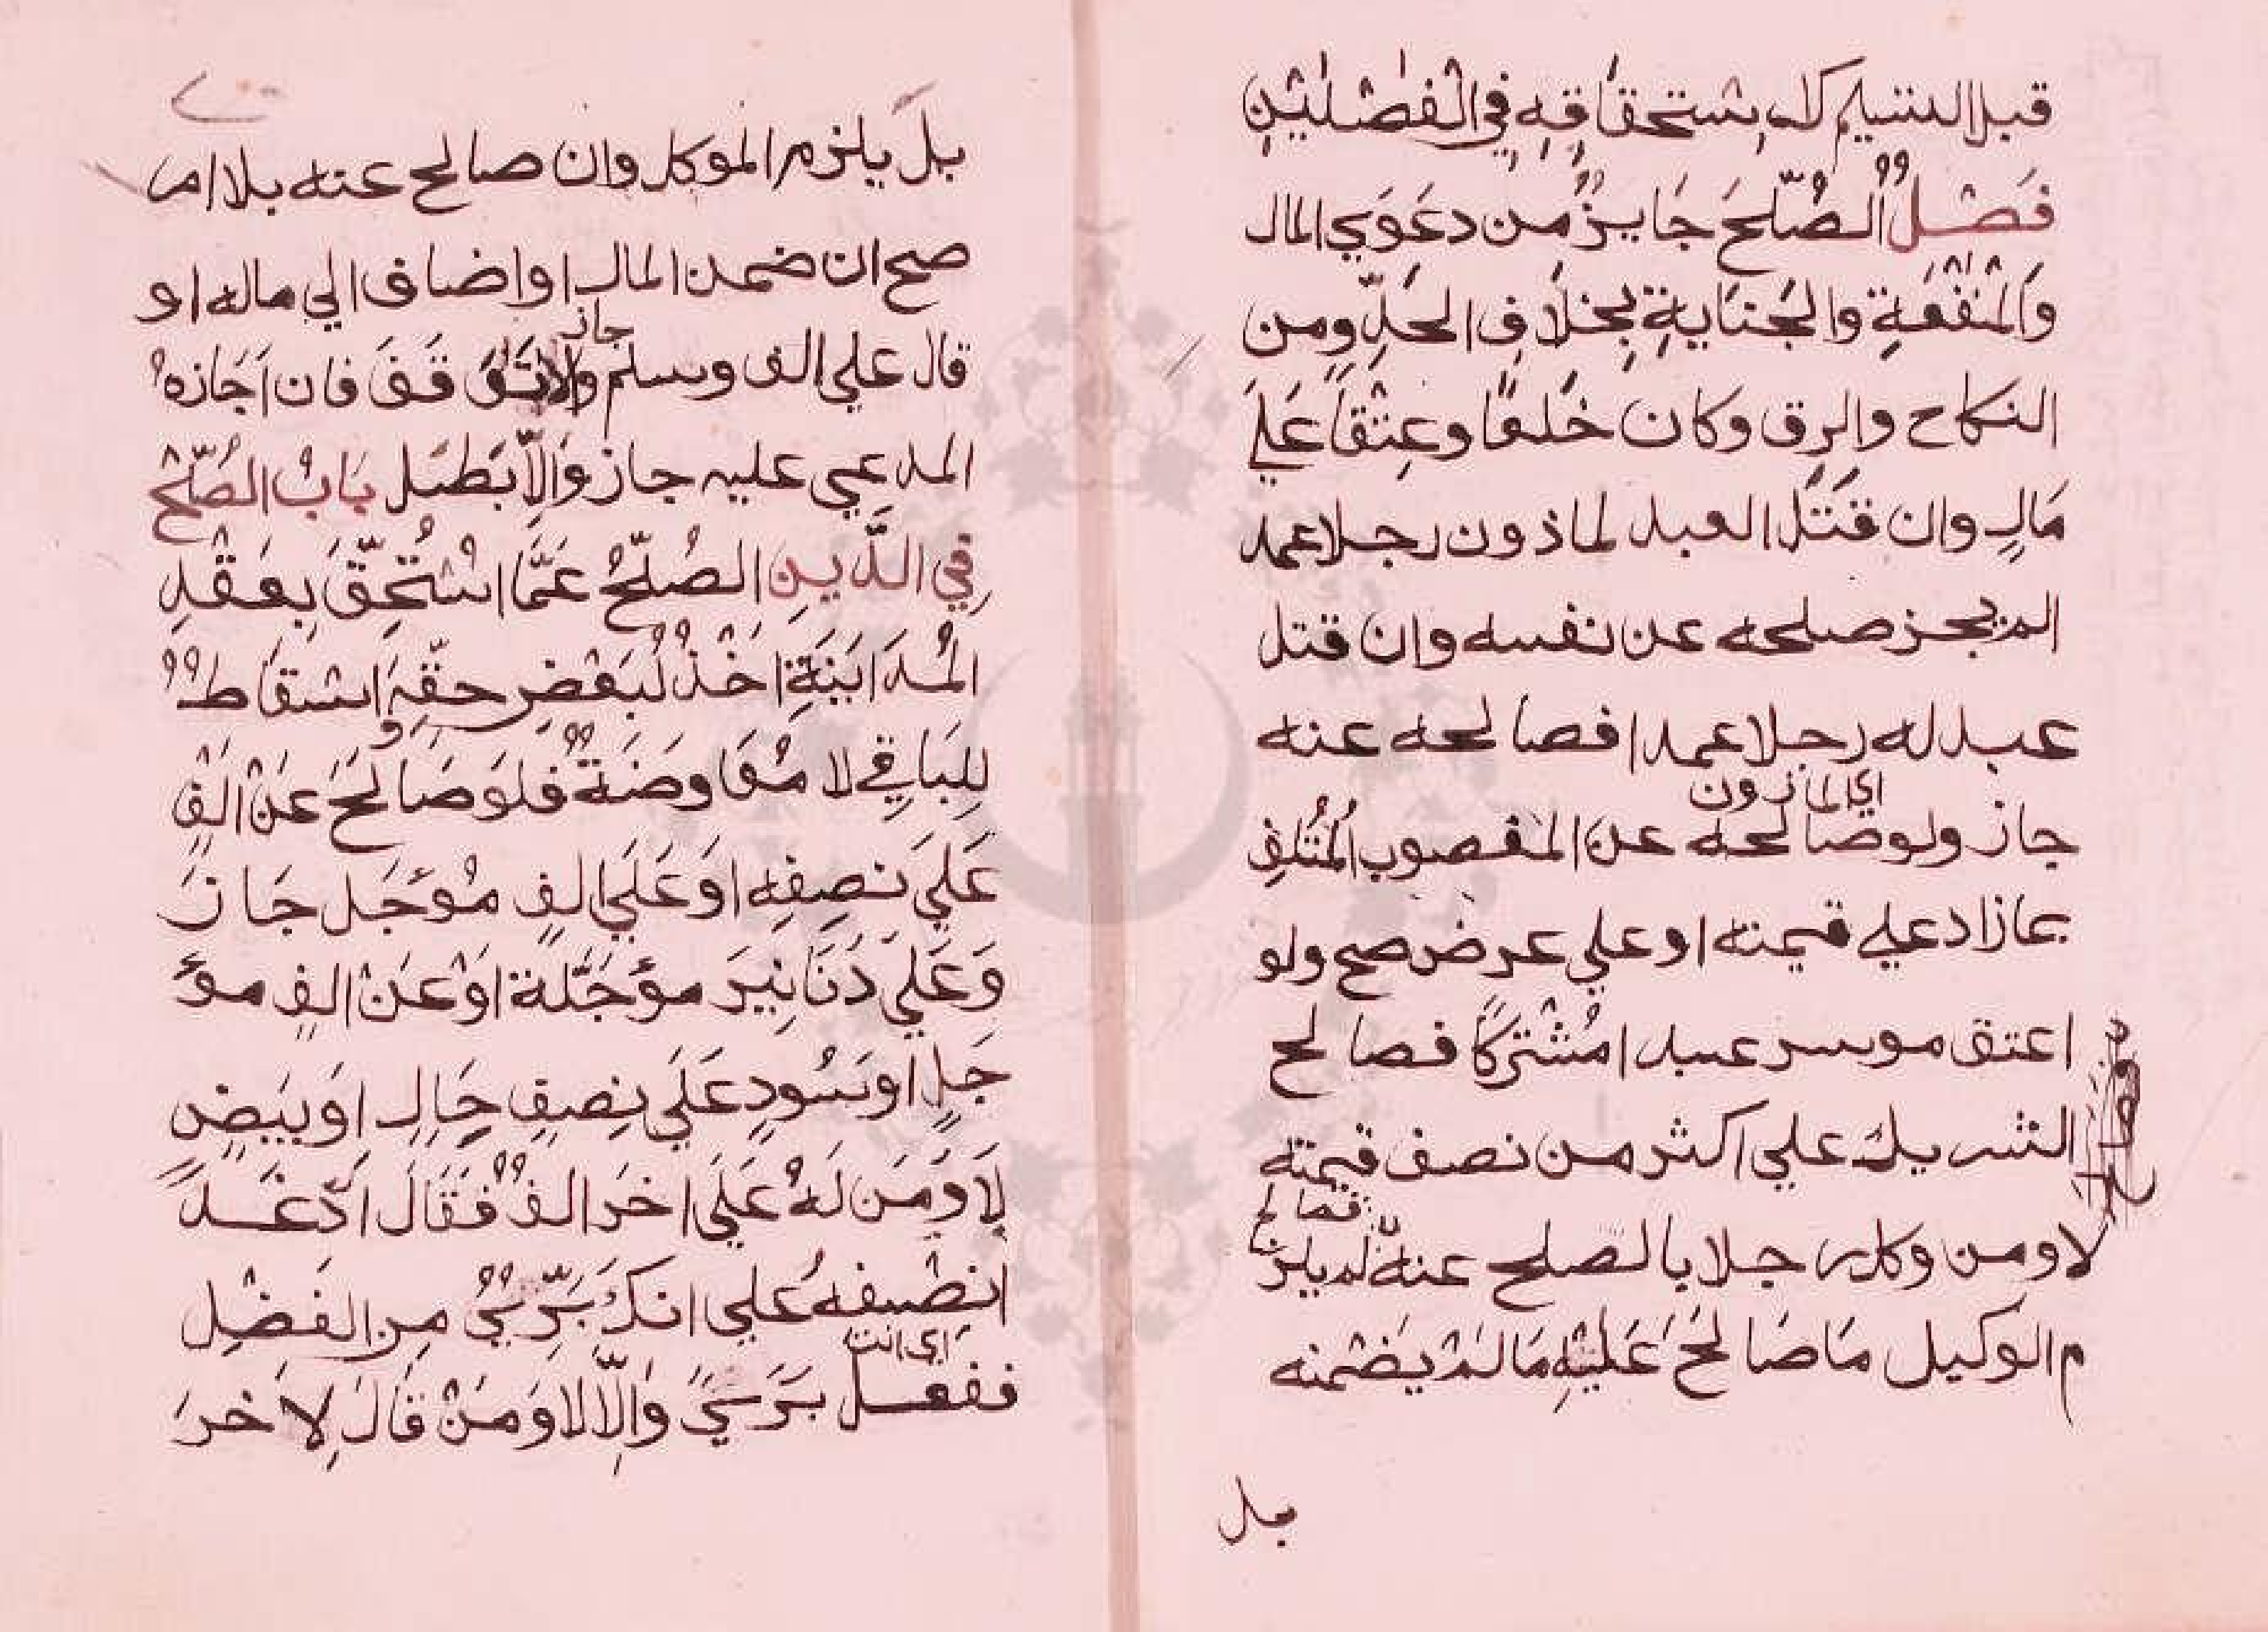 قبل التسليم كاسْتحقَاقِهِ فِي الْفَصْلَيْنِ
فَصْلٌ الصُّلْحَ جَايِزٌ مِن دعَوَي المال
وَالْمَنْفَعَةِ والجَنَايةِ بِخِلَافِ الحَدِّ ومِن
النكاح والرِق وكان خَلعًا وعِتْقاً عَلَي
مَالٍ وان قَتَلَ العبد لماذون رجلا عمد
الم يجز صلحه عن نفسه وان قتل
عبد له رجلا عمدا فصالحه عنه
اي الماذون
جاز ولو صالحه عن المغصوب المُتْلَفِ
بمازاد علي قيمته او علي عرض صح ولو
اعتق موسر عبدا مُشْتَركًا فصالح
الشريك علي اكثر من نصف قيمته
فصالح
لا ومن وكل رجلا بالصلح عنه لم يلز
م الوكيل مَا صَالَحَ عَلَيْهِ مَا لَمْ يَضْمنه
بل
بلَ يلزم الموكل وان صالح عنه بلا امر
صح ان ضمن المال او اضاف الي ماله او
جاز
قال علي الف وسلم والا تَوَ قَفَ فان اَجَازه
المدعي عليه جاز وَاِلَّا بَطَل بَابُ الصُّلْحِ
فِي الدَّينِ الصُلْحُ عَمَّا اسْتُحِقَّ بِعَقْدِ
المُدَايَنَةِ اَخْذٌ لبَعْضِ حقِّهِ واسْقَاطٌ
لِلبَاقِي لا مُعَاوضَةٌ فلَو صَالَحَ عَنْ اَلفٍ
عَلَي نصِفِه اَو عَلَي الفٍ مُؤَجَل جَازَ
وَعَلَي دَنَانِيرَ مؤَجَّلَة اَوْ عَنْ الفٍ مؤَ
جَلٍ اَو سُودٍ عَلَي نِصِفٍ حَالٍ اَو بَيضٍ
لَا وَمَن لَهُ عَلَي اخَر الفٌ فَقَالَ اَدّ غَداً
نصْفهُ علي انكَ بَرِّيٌ مِن الفَضْلِ
اي انت
ففعل بَرَيَ وَاِلَّا لا وَمَنْ قَالَ لِاخَرَ